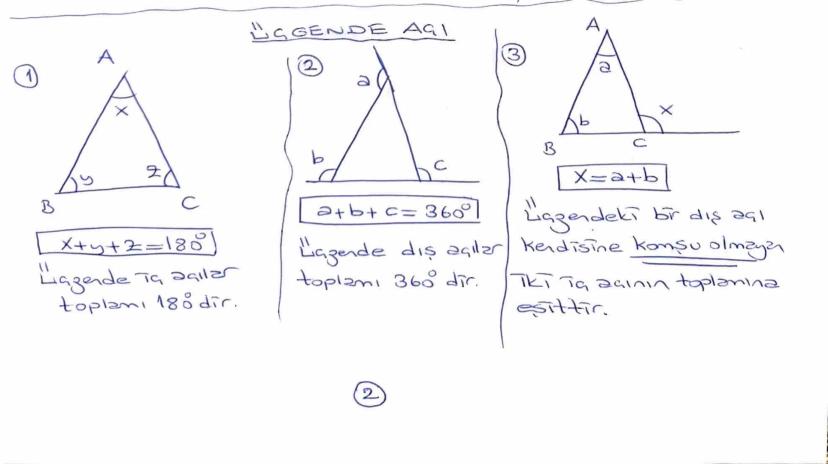 ÜÇGENDE AÇI
①
A
x
y
z
B
C
x+y+z=180°
Üçgende iç açılar
toplamı 180° dir.
②
a
b
c
a+b+c=360°
Üçgende dış açılar
toplamı 360° dir.
③
A
a
b
x
B
C
x=a+b
Üçgendeki bir dış açı
kendisine komşu olmayan
iki iç açının toplamına
eşittir.
②